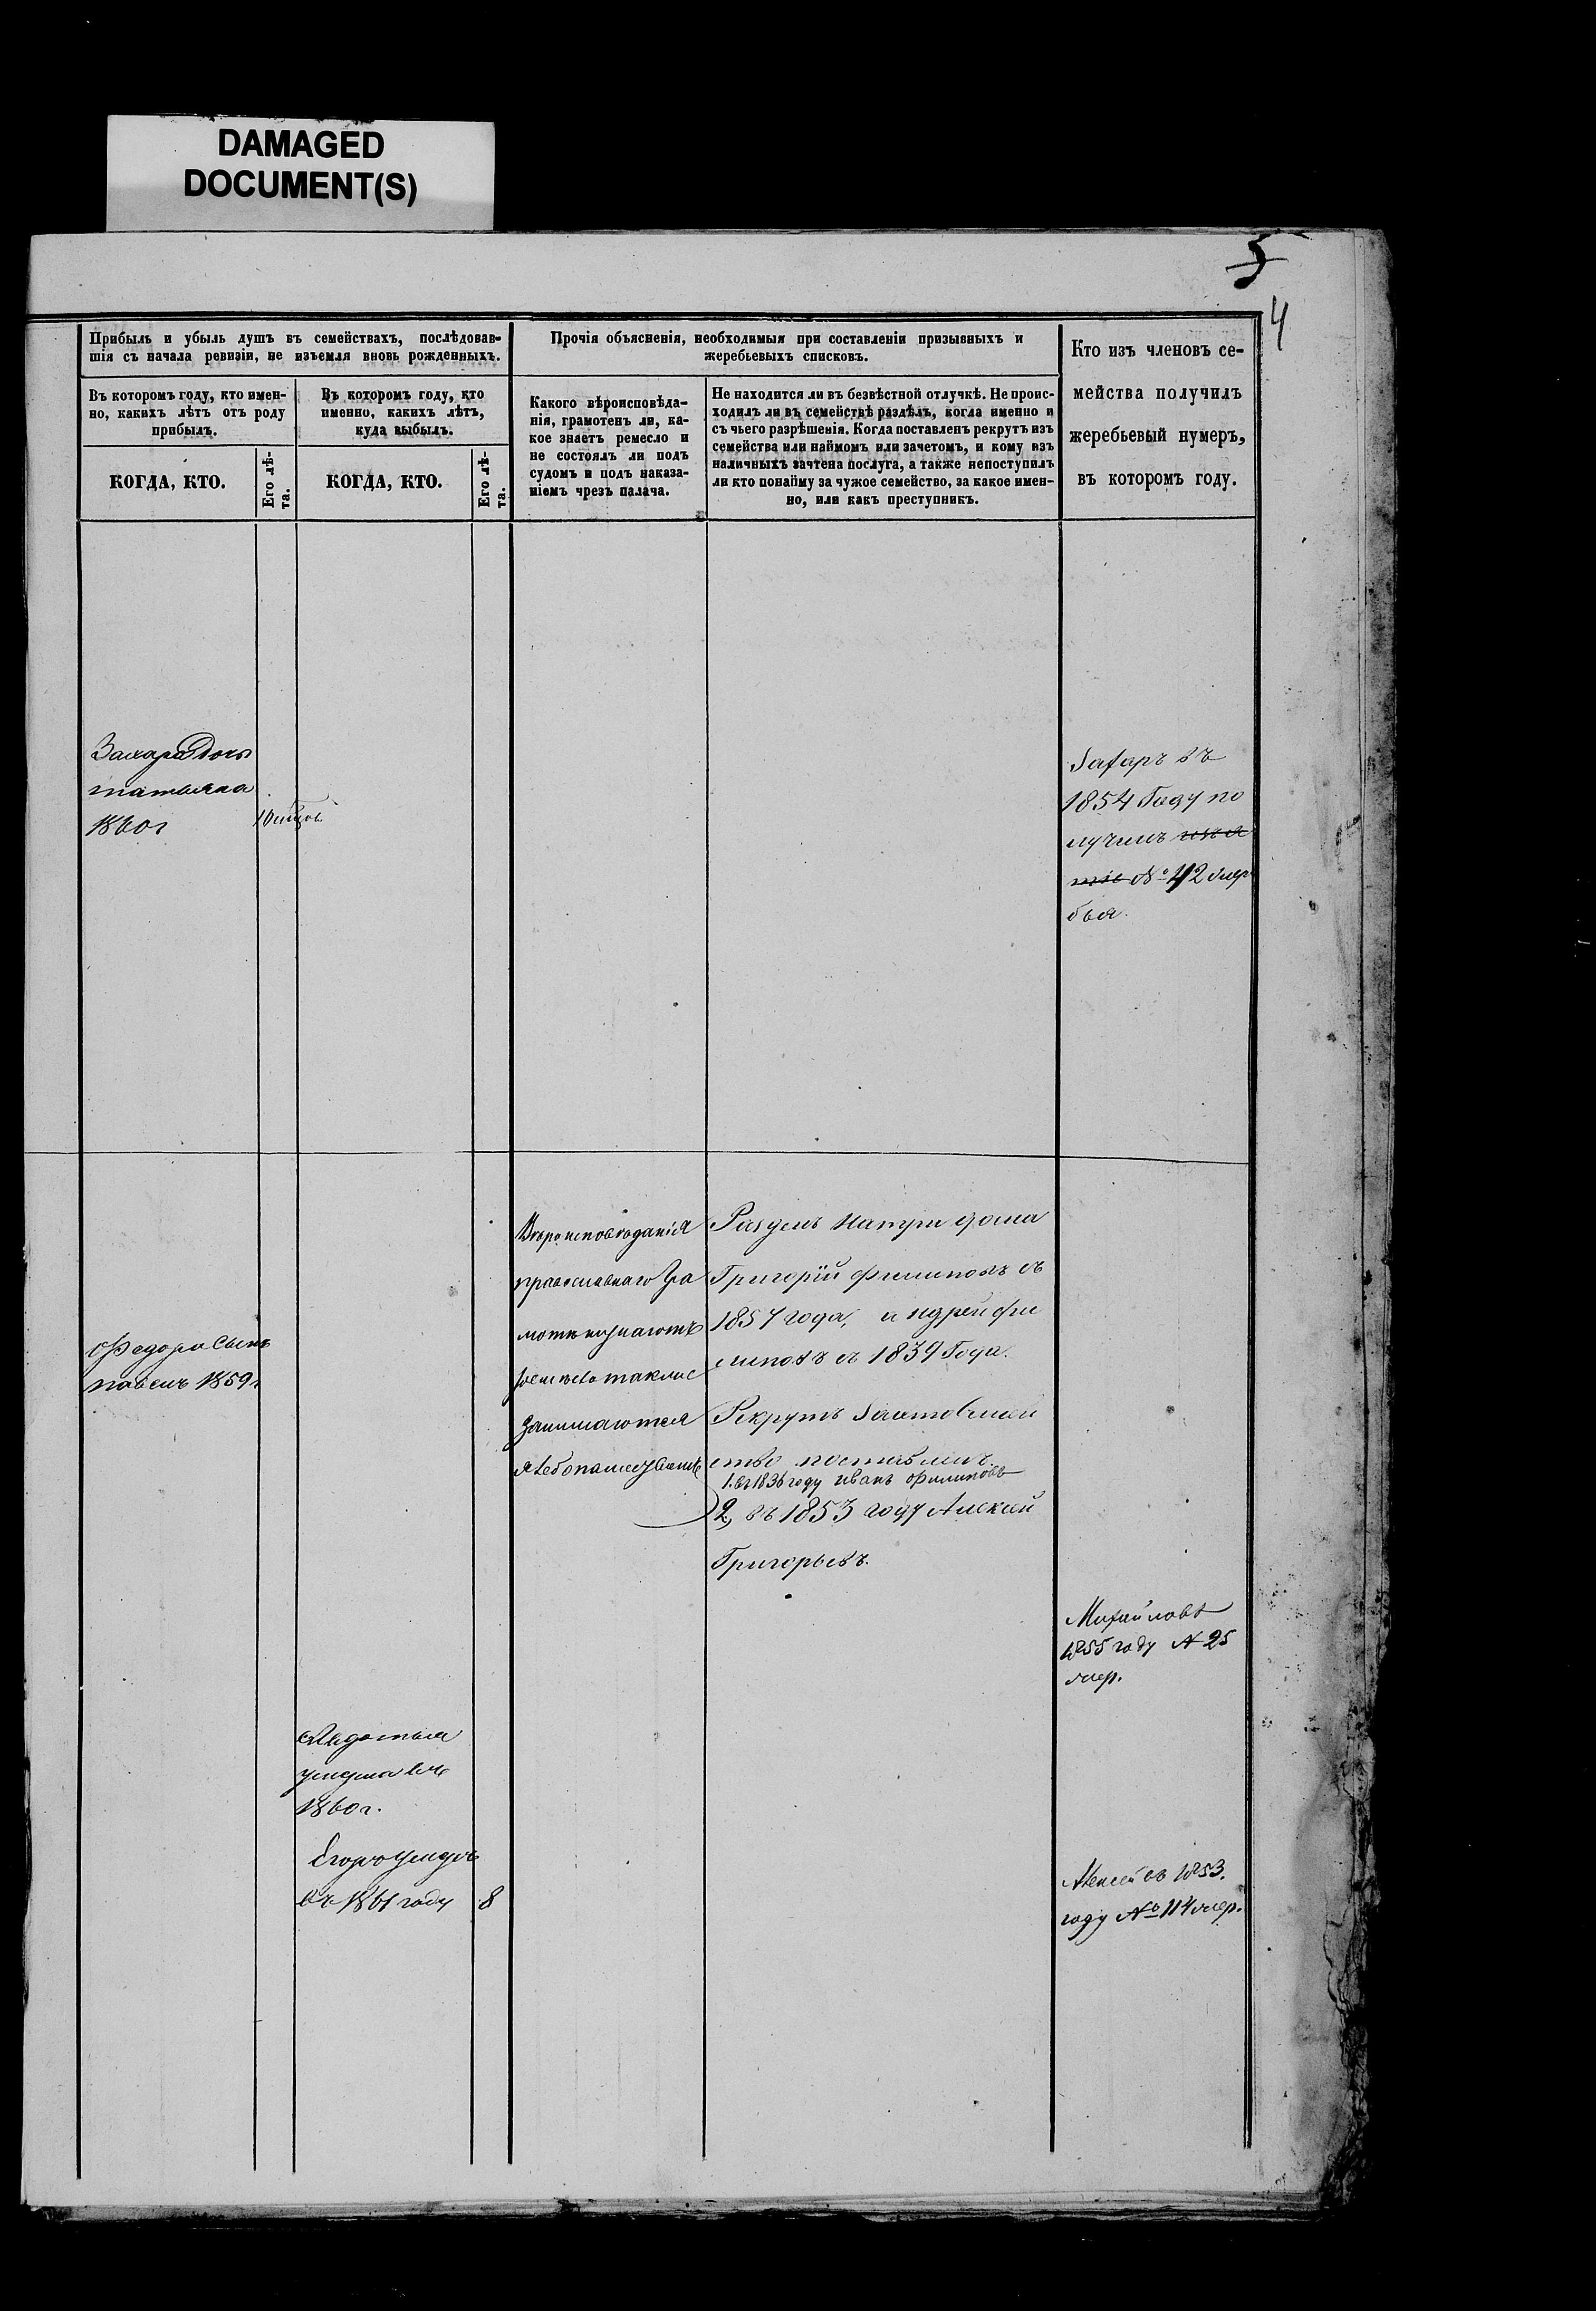 DAMAGED
DOCUMENT(S)
5
4
Прибыль и убыль душъ въ семействахъ, послѣдовав-
шія съ начала ревизіи, не изъемля вновь рожденныхъ.
Прочія объясненія, необходимыя при составленіи призывныхъ и
жеребьевыхъ списковъ.
Кто изъ членовъ се-
мейства получилъ
жеребьевый нумеръ,
въ которомъ году.
Въ которомъ году, кто имен-
но, какихъ лѣтъ отъ роду
прибылъ.
Въ которомъ году, кто
именно, какихъ лѣтъ,
куда выбылъ.
Какого вѣроисповѣда-
нія, грамотенъ ли, ка-
кое знаетъ ремесло и
не состоялъ ли подъ
судомъ и подъ наказа-
ніемъ чрезъ палача.
Не находится ли въ безвѣстной отлучкѣ. Не проис-
ходилъ ли въ семействѣ раздѣлъ, когда именно и
съ чьего разрѣшенія. Когда поставленъ рекрутъ изъ
семейства или наймомъ или зачетомъ, и кому изъ
наличныхъ зачтена послуга, а также непоступилъ
ли кто понайму за чужое семейство, за какое имен-
но, или какъ преступникъ.
КОГДА, КТО.
Его лѣ-
та.
КОГДА, КТО.
Его лѣ-
та.
Захара дочь
татьяна
1860г
Захаръ въ
1854 Году по
лучилъ
№ 42 жере
бья.
Вѣроисповѣданія
православнаго Гра
мотѣ незнаютъ
также
занимаются
Раздѣлъ Натри дома
Григорій филиповъ съ
1857 года, андрей фи
липовъ съ 1839 Года.
Рекрутъ
ство поставленъ
1. въ 1836 году иванъ Филиповъ
2, въ 1853 году Алексей
Григорьевъ.
Федора Сынъ
павелъ 1859г
Михайло въ
1855 году № 25
жер.
Авдотья
умерла въ
1860 г.
Егоръ умеръ
въ 1861 году 8
Алексей въ 1853.
году № 114 жер.